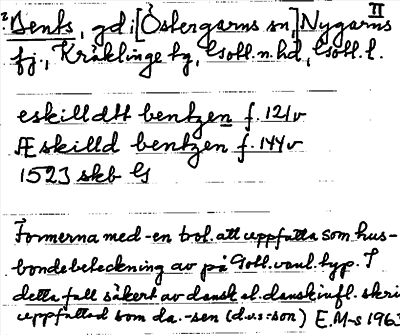 ? Bents, gd i [Östergarns sn,] Nygarns II
fj., Kräklinge tg, Gotl. n. hd, Gotl. l.
eskilldtt bentzen f. 121v
Æskilld bentzen f. 144v
1523 skb G
Formerna med -en bol. att uppfatta som hus-
bondebeteckning av på Gotl. vanl. typ. I
detta fall säkert av dansk el. danskinfl. skri
uppfattad som da. -sen (d.v.s -son) E.M-s 1963